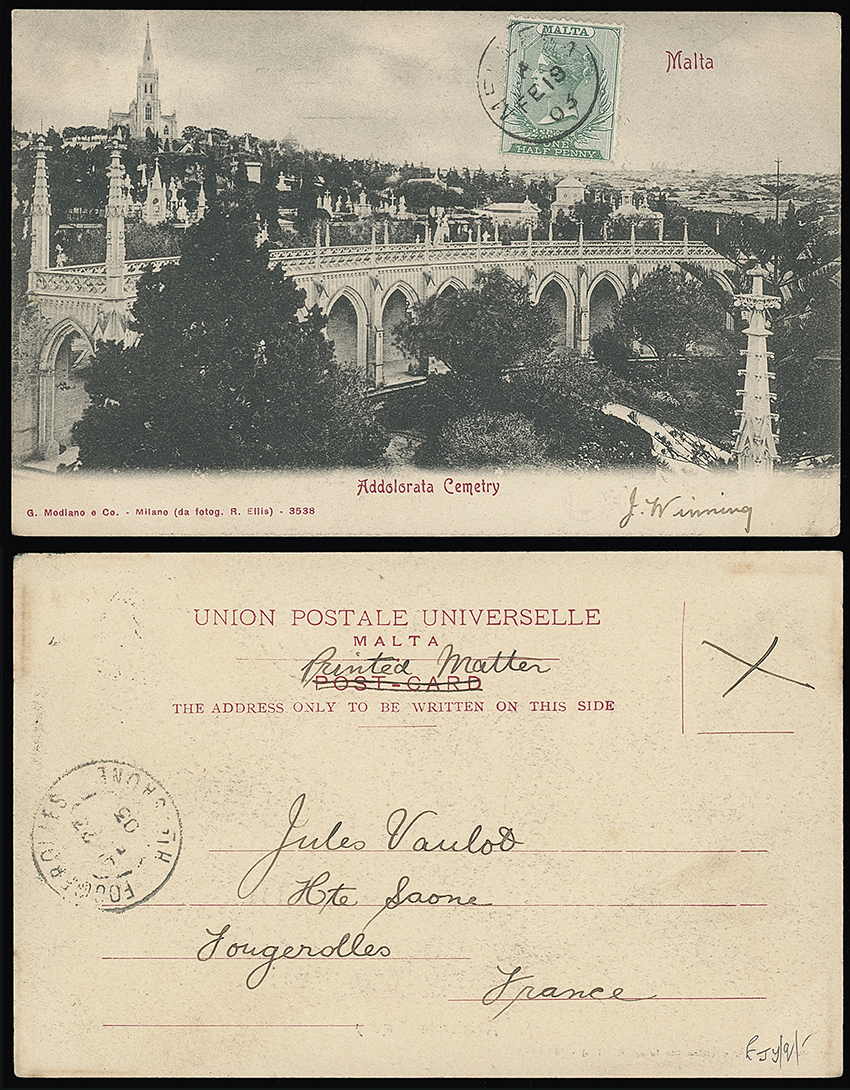 MALTA
Malta
A
FE 19
03
ONE
HALF PENNY
Addolorata Cemetry
G. Modiano e Co. - Milano (da fotog. R. Ellis) - 3538
J. Winning
UNION POSTALE UNIVERSELLE
MALTA
Printed Matter
POST-CARD
THE ADDRESS ONLY TO BE WRITTEN ON THIS SIDE
FOUGEROLLES
03
Jules Vaulot
Hte Saone
Fougerolles
France